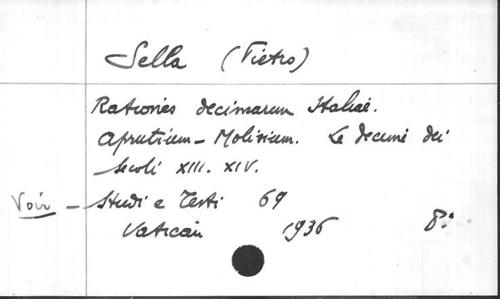 Sella (Pietro)
Rationes decimarum Italiae.
Aprutium - Molisium. Le decime dei
secoli XIII. XIV.
Voir - Studi e Testi 69
Vatican 1936 8: